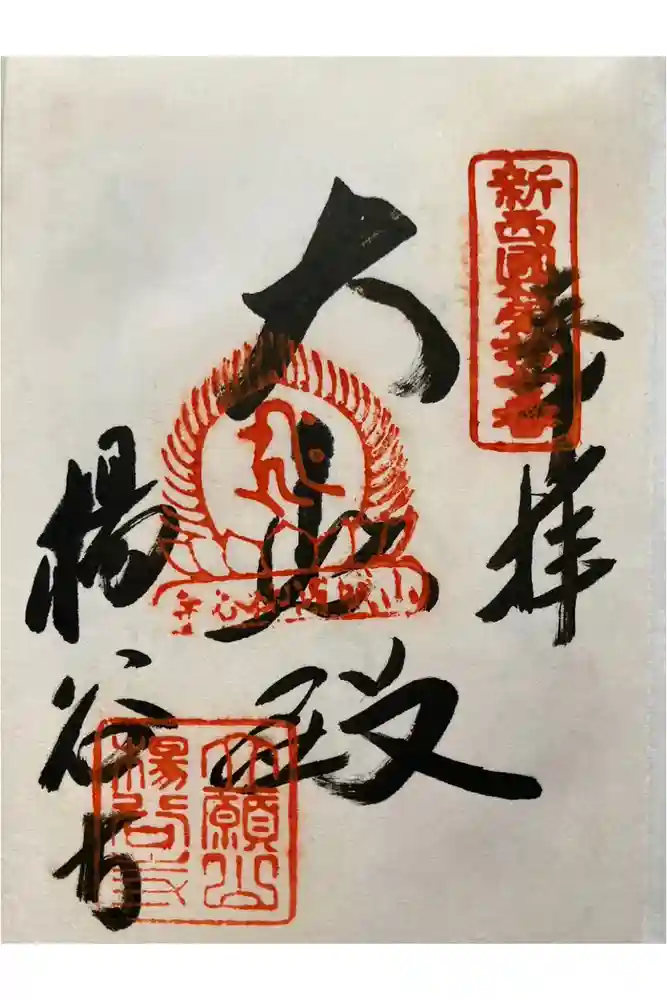 新西國第十七番
奉拝
大悲殿
楊谷寺
立願山
楊谷寺